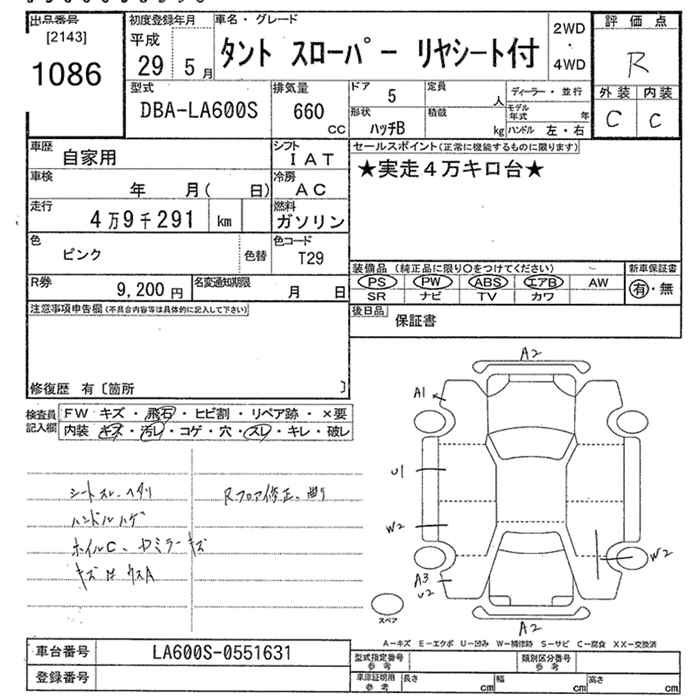 出品番号
[2143]
1086
初度登録年月
平成
29 5月
車名・グレード
タント スローパー リヤシート付
2WD
・
4WD
評価点
R
外装 内装
C C
型式
DBA-LA600S
排気量
660
cc
ドア
5
定員
人
ディーラー・並行
形状
ハッチB
積載
kg
モデル年式
年
ハンドル 左・右
車歴
自家用
シフト
IAT
車検
年 月( 日)
冷房
AC
走行
4万9千291 km
燃料
ガソリン
色
ピンク
色替
色コード
T29
R券
9,200円
名変通知期限
月 日
セールスポイント(正常に機能するものに限ります)
★実走4万キロ台★
装備品 (純正品に限り○をつけてください)
新車保証書
PS PW ABS エアB AW
有・無
SR ナビ TV カワ
後日品
保証書
注意事項申告欄(不具合内容等は具体的に記入して下さい)
修復歴 有〔箇所 〕
検査員
記入欄
FW キズ・飛石・ヒビ割・リペア跡・×要
内装 キズ・汚レ・コゲ・穴・スレ・キレ・破レ
シートスレ、ヘタリ
ハンドルハゲ
ホイルC、ドミラーキズ
キズ
Rフロア修正、曲り
A2
A1
U1
W2
A3
U2
W2
A2
スペア
A-キズ E-エクボ U-凹み W-補修跡 S-サビ C-腐食 XX-交換済
車台番号
LA600S-0551631
登録番号
型式指定番号
参考
類別区分番号
参考
車庫証明用
参考
長さ
cm
幅
cm
高さ
cm